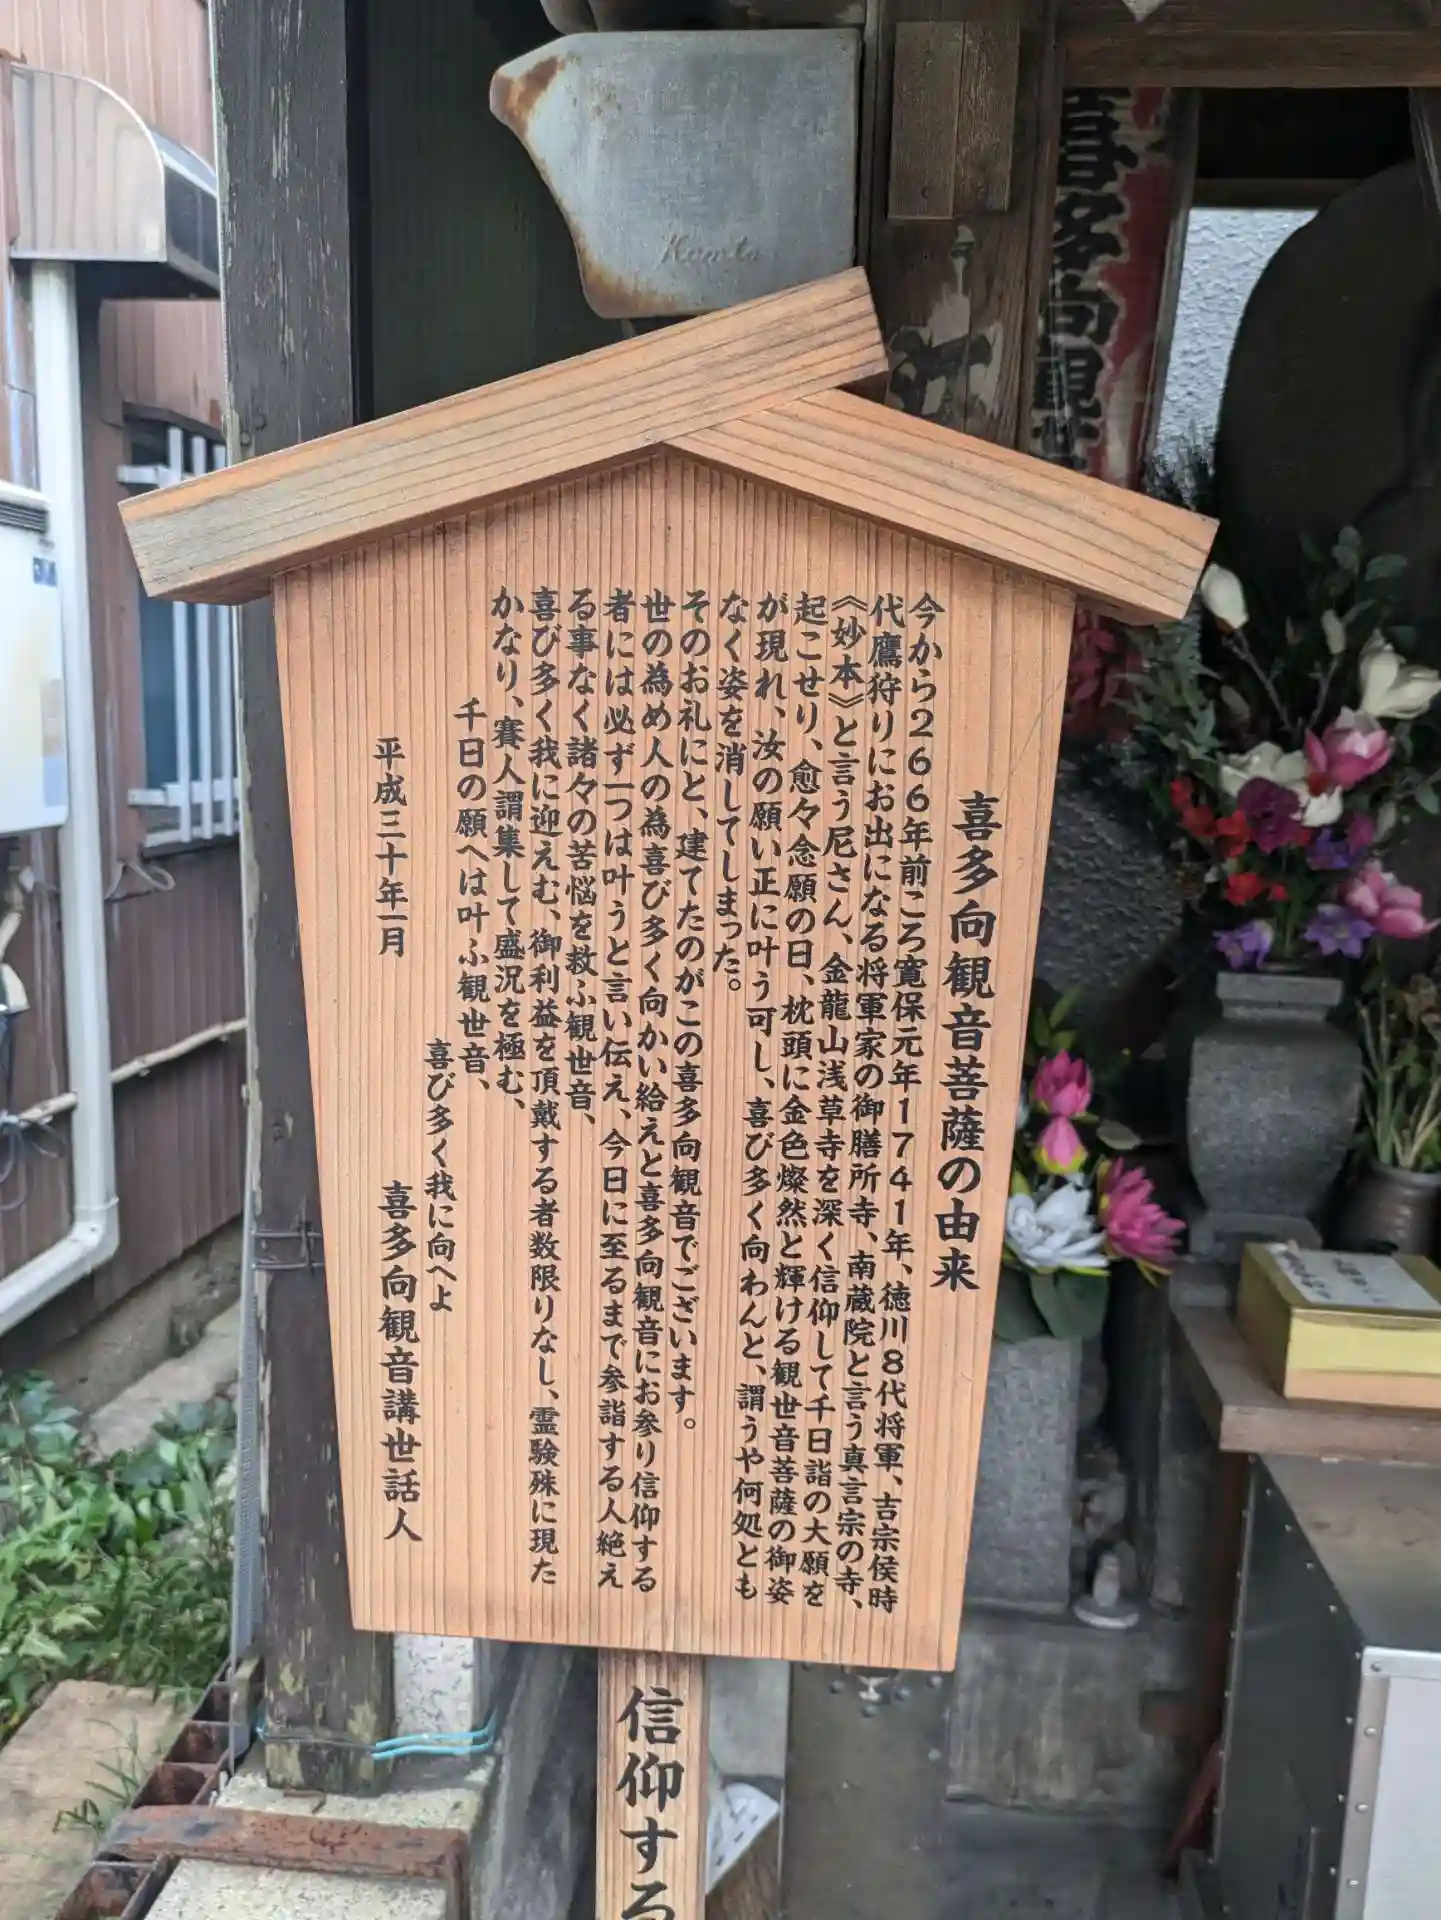 喜多向観音菩薩の由来
今から266年前ころ寛保元年1741年、徳川8代将軍、吉宗侯時
代鷹狩りにお出になる将軍家の御膳所寺、南蔵院と言う真言宗の寺、
《妙本》と言う尼さん、金龍山浅草寺を深く信仰して千日詣の大願を
起こせり、愈々念願の日、枕頭に金色燦然と輝ける観世音菩薩の御姿
が現れ、汝の願い正に叶う可し、喜び多く向わんと、謂うや何処とも
なく姿を消してしまった。
そのお礼にと、建てたのがこの喜多向観音でございます。
世の為め人の為喜び多く向かい給えと喜多向観音にお参り信仰する
者には必ず一つは叶うと言い伝え、今日に至るまで参詣する人絶え
る事なく諸々の苦悩を救ふ観世音、
喜び多く我に迎えむ、御利益を頂戴する者数限りなし、霊験殊に現た
かなり、賽人謂集して盛況を極む、
千日の願へは叶ふ観世音、
喜び多く我に向へよ
平成三十年一月
喜多向観音講世話人
信仰する
喜多向観世
Kamto